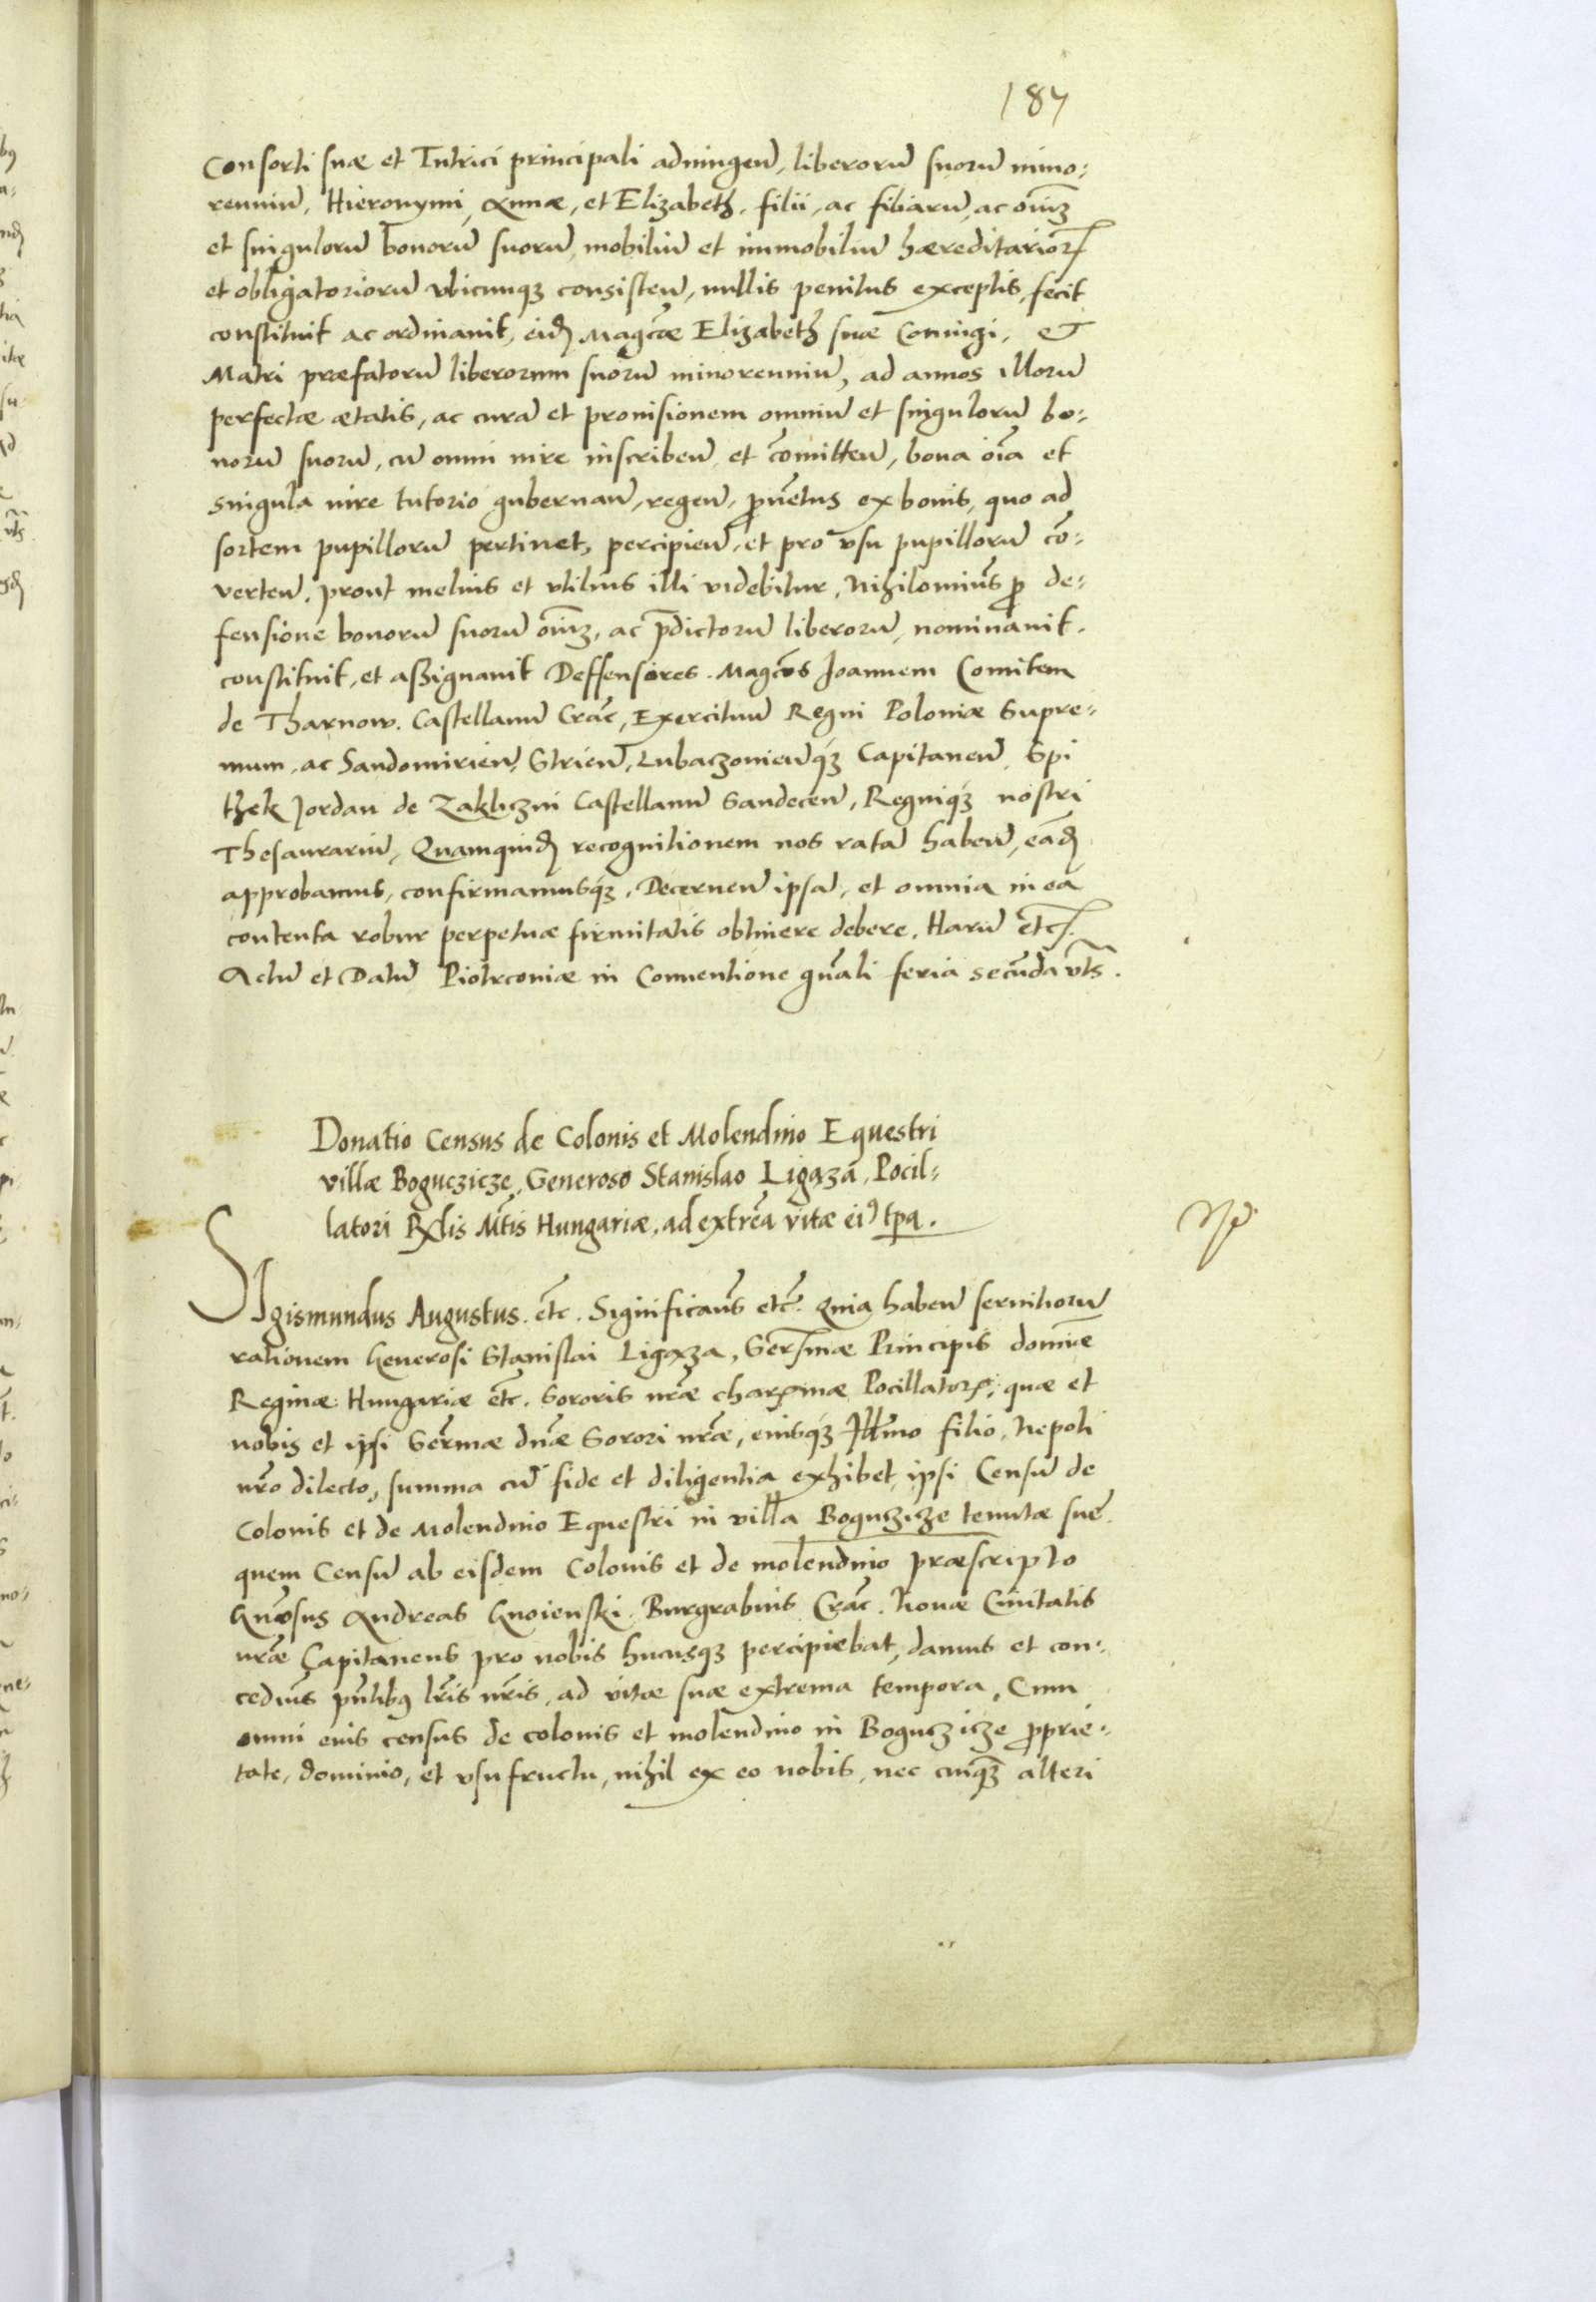 187
Consorti suæ et Tutrici principali adiungeñ, liberorũ suorũ mino:
renniũ, Hieronymi, Annæ, et Elizabeth, filii, ac filiarũ, ac om̃iũ
et singulorũ bonorũ suorũ, mobiliũ et immobiliũ hæreditarioꝝ
et obligatoriorũ vbicunqꝫ consisteñ, nullis penitus exceptis, fecit
constituit ac ordinauit, eidꝫ Magcæ Elizabeth suæ Coniugi, et
Matri præfatorũ liberorum suorũ minorenniũ, ad annos illorũ
perfectæ ætatis, ac curã et prouisionem omniũ et singulorũ bo:
norũ suorũ, cũ omni iure inscribeñ et com̃itteñ, bona oĩa et
singula iure tutorio gubernañ, regeñ, ꝓuẽtus ex bonis, quo ad
sortem pupillorũ pertinet, percipieñ, et pro vsu pupillorũ cõ:
verteñ, prout melius et vtilius illi videbitur, Nihilominũs ꝓ de:
fensione bonorũ suorũ om̃iũ, ac p̃dictorũ liberorũ, nominauit,
constituit, et assignauit Deffensores. Magcos Joannem Comitem
de Tharnow. Castellanũ Crac̃, Exercituũ Regni Poloniæ Supre:
mum, ac Sandomirieñ, Strieñ, Lubaczouieñqꝫ Capitaneũ, Spi
thek Jordan de Zakliczin Castellanũ Sandeceñ, Regniqꝫ nostri
Thesaurariũ, Quamquidꝫ recognitionem nos ratã habeñ, eãdꝫ
approbamus, confirmamusqꝫ, Decerneñ ipsã, et omnia in ea
contenta robur perpetuæ firmitatis obtinere debere. Harũ etc̃.
Actũ et Datũ Piotrcouiæ in Conuentione gnãli feria secũda vts̃.
Donatio Census de Colonis et Molendino Equestri
villæ Boguczicze, Generoso Stanislao Ligęza, Pocil:
latori Rxlis Mtis Hungariæ, ad extrẽa vitæ eiꝰ tpa.
Sigismundus Augustus. etc̃. Significam̃us etc̃. Quia habeñ seruitiorũ
rationem Generosi Stanislai Ligęza, Serꝫmæ Principis dominæ
Reginæ Hungariæ etc̃. Sororis nr̃æ charꝫmæ Pocillatorꝭ, quæ et
nobis et ipsi Sermæ dnæ Sorori nr̃æ, eiusqꝫ Illmo filio, Nepoti
nr̃o dilecto, summa cũ fide et diligentia exhibet, ipsi Censũ de
Colonis et de Molendino Equestri in villa Boguczicze tenutæ suẽ
quem Censũ ab eisdem Colonis et de molendino præscripto
Gnosus Andreas Gnoienski. Burgrabius Crac̃. Nouæ Ciuitatis
nr̃æ Capitaneus pro nobis hucusqꝫ percipiebat, damus et con:
cedim̃us pñtibꝰ lr̃is nr̃is, ad vitæ suæ extrema tempora, Cum
omni eius census de colonis et molendino in Boguczicze ꝓprie:
tate, dominio, et vsufructu, nihil ex eo nobis, nec cuiqꝫ alteri